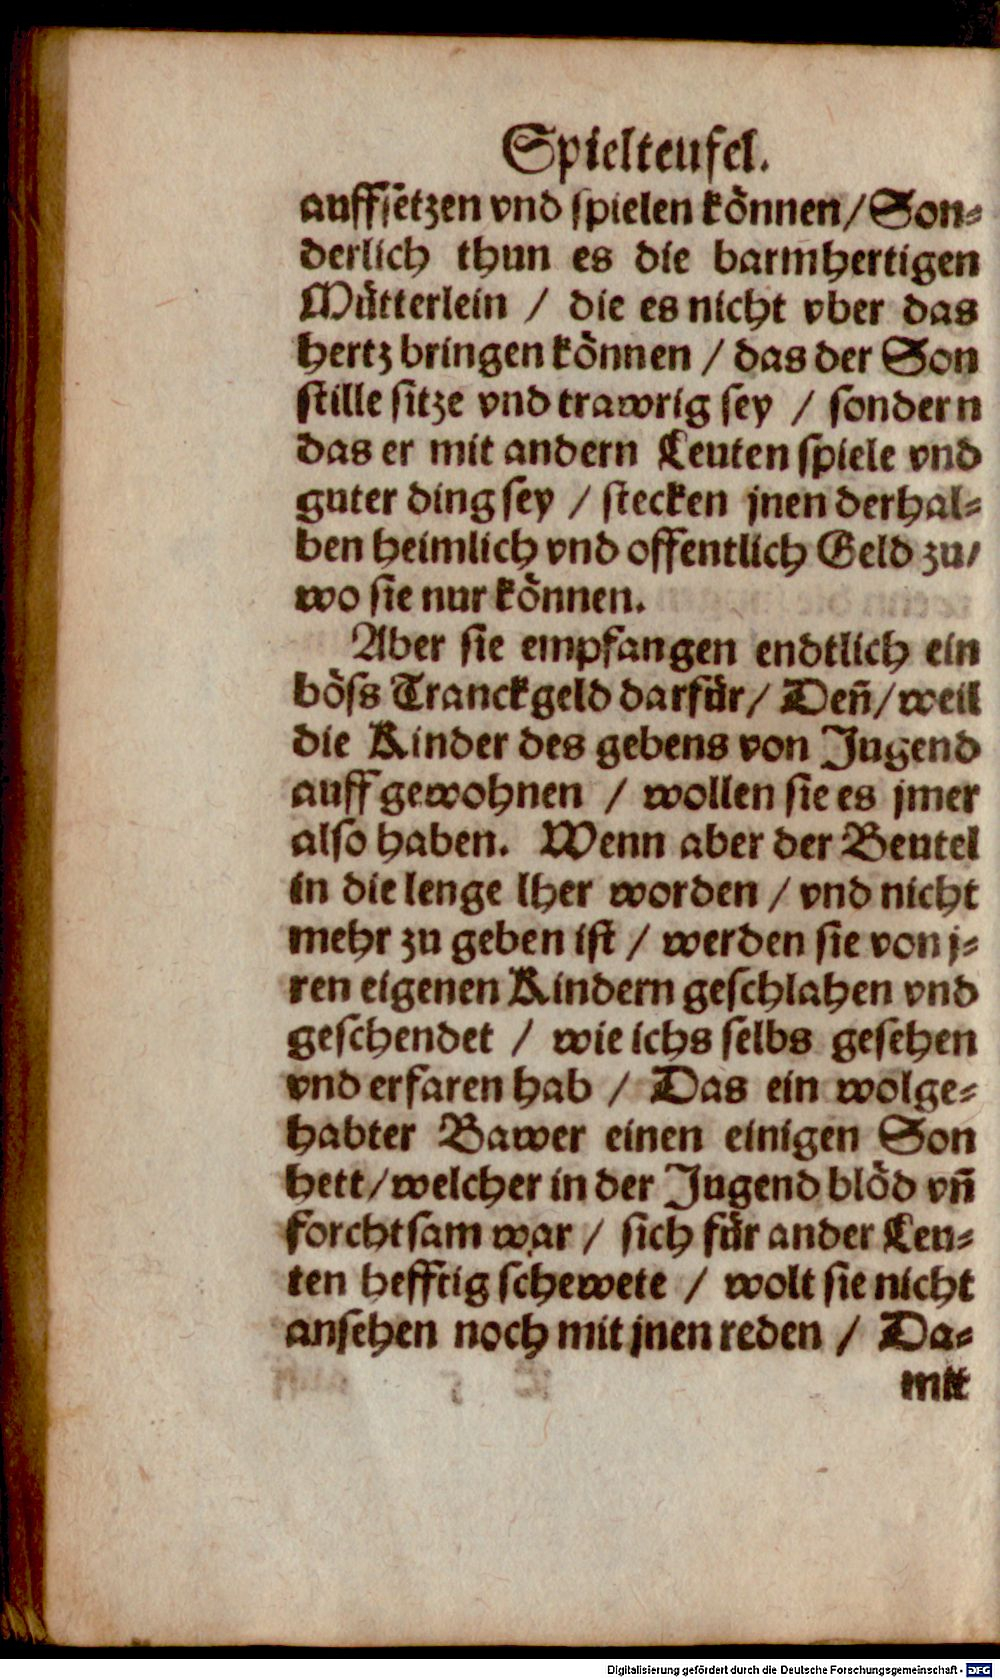 Spielteufel.
auffsetzen vnd spielen können/Son⸗
derlich thun es die barmhertigen
Mütterlein / die es nicht vber das
hertz bringen können / das der Son
stille sitze vnd trawrig sey / sondern
das er mit andern Leuten spiele vnd
guter ding sey / stecken jnen derhal⸗
ben heimlich vnd offentlich Geld zu/
wo sie nur können.
Aber sie empfangen endtlich ein
böss Tranckgeld darfür/ Deñ/weil
die Kinder des gebens von Jugend
auff gewohnen / wollen sie es jmer
also haben. Wenn aber der Beutel
in die lenge lher worden / vnd nicht
mehr zu geben ist / werden sie von j⸗
ren eigenen Kindern geschlahen vnd
geschendet / wie ichs selbs gesehen
vnd erfaren hab / Das ein wolge⸗
habter Bawer einen einigen Son
hett/welcher in der Jugend blöd vñ
forchtsam war / sich für ander Leu⸗
ten hefftig schewete / wolt sie nicht
ansehen noch mit jnen reden / Da⸗
mit
Digitalisierung gefördert durch die Deutsche Forschungsgemeinschaft - DFG